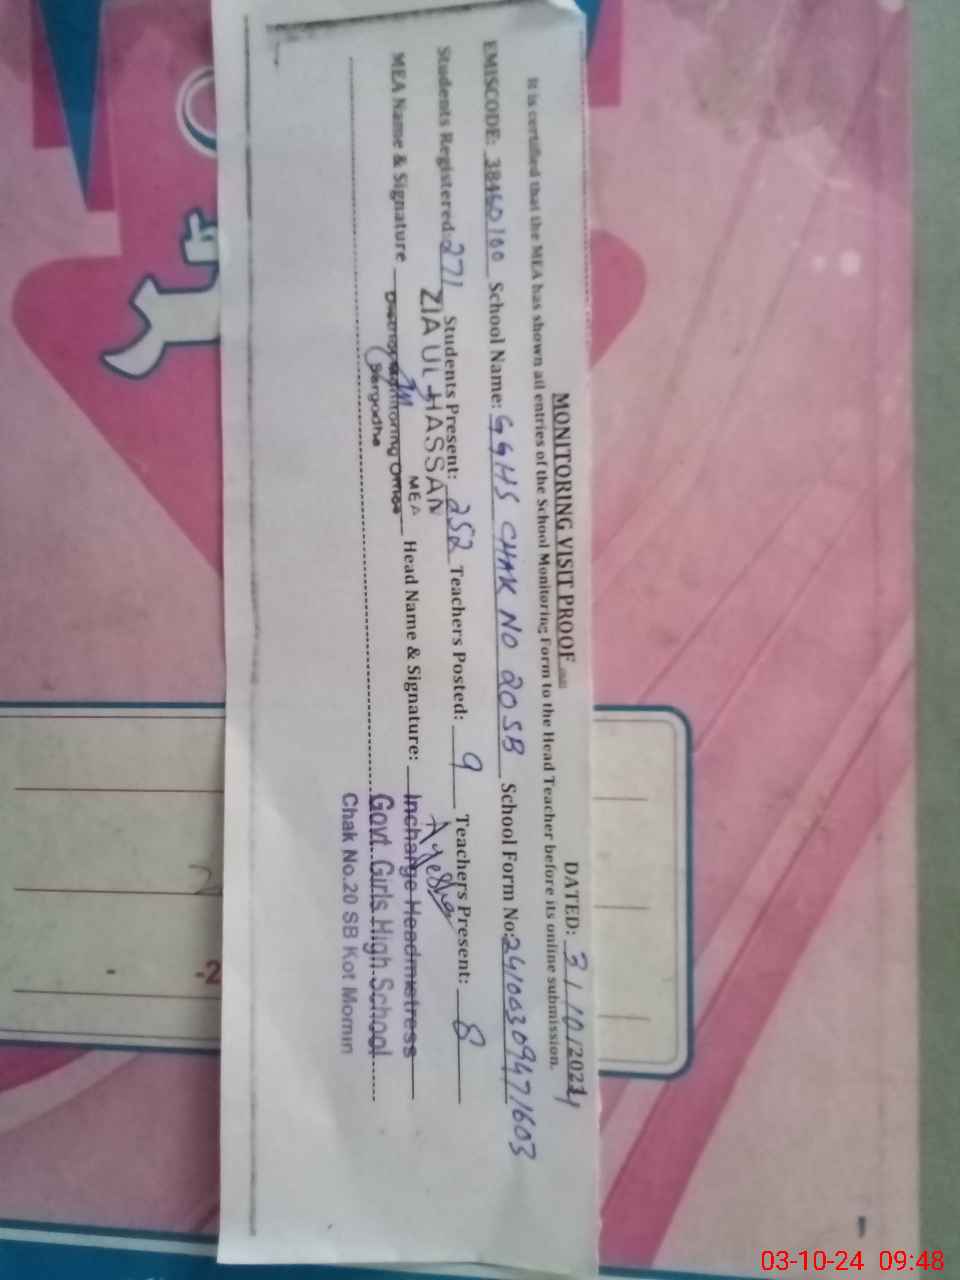 MONITORING VISIT PROOF
DATED: 3/10/2024
It is certified that the MEA has shown all entries of the School Monitoring Form to the Head Teacher before its online submission.
EMISCODE: 38460100 School Name: GGHS CHAK NO 20SB School Form No: 24100309471603
Students Registered: 271 Students Present: 252 Teachers Posted: 9 Teachers Present: 8
ZIA UL HASSAN
MEA
Ayesha
MEA Name & Signature Head Name & Signature:
District Monitoring Office
Sargodha
Incharge Headmistress
Govt. Girls High School
Chak No.20 SB Kot Momin
-2
03-10-24 09:48